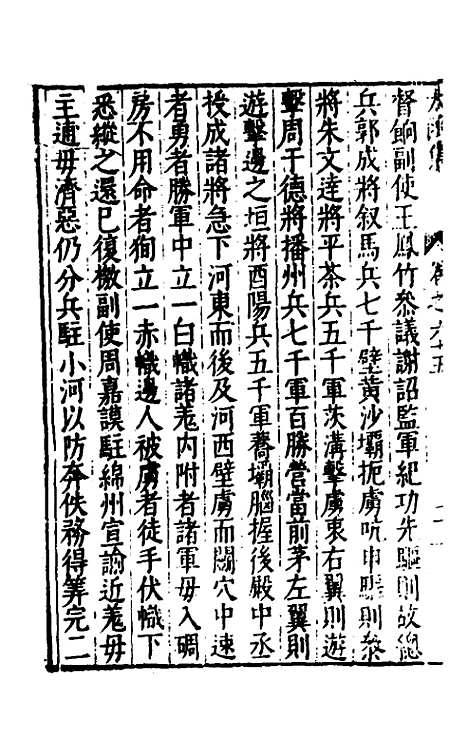 卷之六十五
督餉副使王鳳竹參議謝詔監軍紀功先驅則故總
兵郭成將叙馬兵七千壁黃沙壩扼虜吭中驅則參
將朱文達將平茶兵五千軍茨溝擊虜東右翼則遊
擊周于德將播州兵七千軍百勝營當前茅左翼則
遊擊邊之垣將酉陽兵五千軍蕎壩腦握後殿中丞
授成諸將急下河東而後及河西壁虜而鬪穴中速
者勇者勝軍中立一白幟諸羗内附者諸軍毋入碉
房不用命者狥立一赤幟邊人被虜者徒手伏幟下
悉縱之還已復檄副使周嘉謨駐綿州宣諭近羗毋
主逋毋濟惡仍分兵駐小河以防奔佚務得筭完二